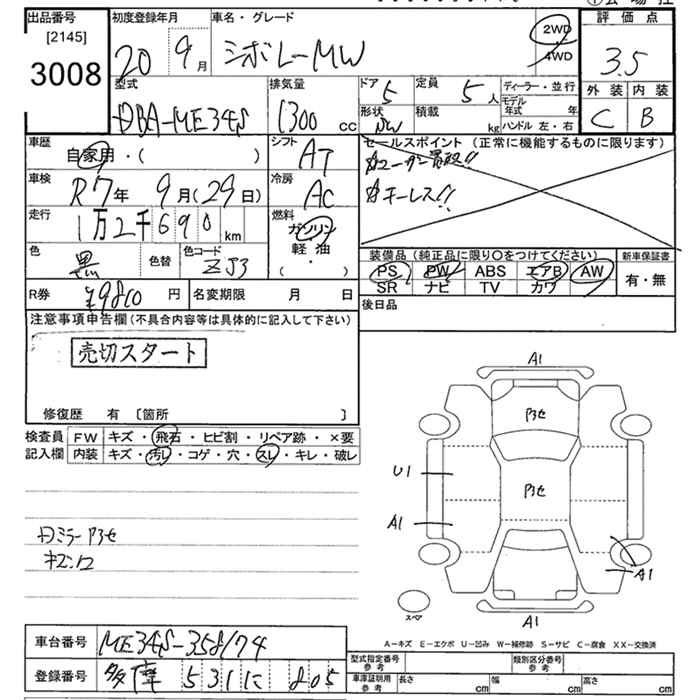 出品番号 初度登録年月 車名・グレード 評価点
[2145]
3008
20 9月 シボレーMW 2WD 4WD 3.5
外装 内装
C B
型式 排気量 ドア 定員 ディーラー・並行
DBA-ME34S 1300 cc 5 5人 モデル年式 年
形状 積載 kg ハンドル 左・右
車歴 シフト セールスポイント (正常に機能するものに限ります)
自家用・( ) AT
車検 冷房 キーレス!!
R7年 9月(29日) AC
走行 燃料
1万2千690km ガソリン
軽油
( ・ )
色 黒 色替 色コード ZJ3
装備品 (純正品に限り〇をつけてください) 新車保証書
PS PW ABS エアB AW 有・無
SR ナビ TV カワ
R券 ¥9810 円 名変期限 月 日 後日品
注意事項申告欄(不具合内容等は具体的に記入して下さい)
売切スタート
修復歴 有 [箇所 ]
検査員 FW キズ・飛石・ヒビ割・リペア跡・×要
記入欄 内装 キズ・汚レ・コゲ・穴・スレ・キレ・破レ
A1
U1
A1
A1
スペア
A1
A-キズ E-エクボ U-凹み W-補修跡 S-サビ C-腐食 XX-交換済
車台番号 ME34S-358174
型式指定番号 参考 類別区分番号 参考
登録番号 多摩 531 に 805
車庫証明用 参考 長さ cm 幅 cm 高さ cm